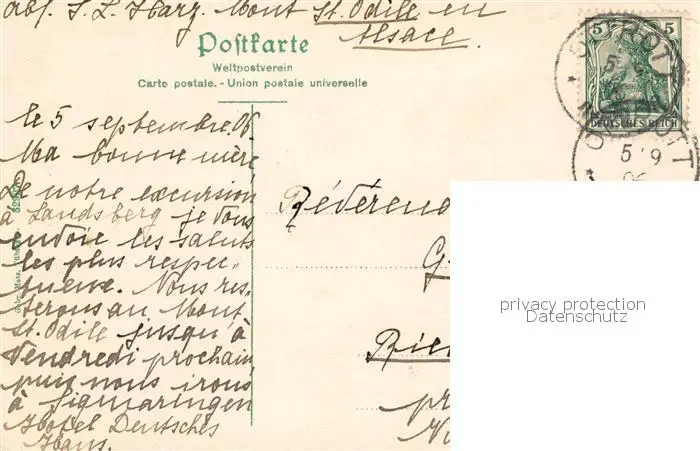 Abs. S. L. Harz. Mont St. Odile en
Alsace.
Postkarte
Weltpostverein
Carte postale. - Union postale universelle
5 5
DEUTSCHES REICH
OTTROTT
5 9
le 5 septembre 06.
Ma bonne mère
De notre excursion
à Landsberg je vous
envoie les saluts
les plus respec-
tueux. Nous res-
terons au Mont
St. Odile jusqu'à
Vendredi prochain
puis nous irons
à Sigmaringen
Hotel Deutsches
Haus.
Révérend
G
Rie
privacy protection
Datenschutz